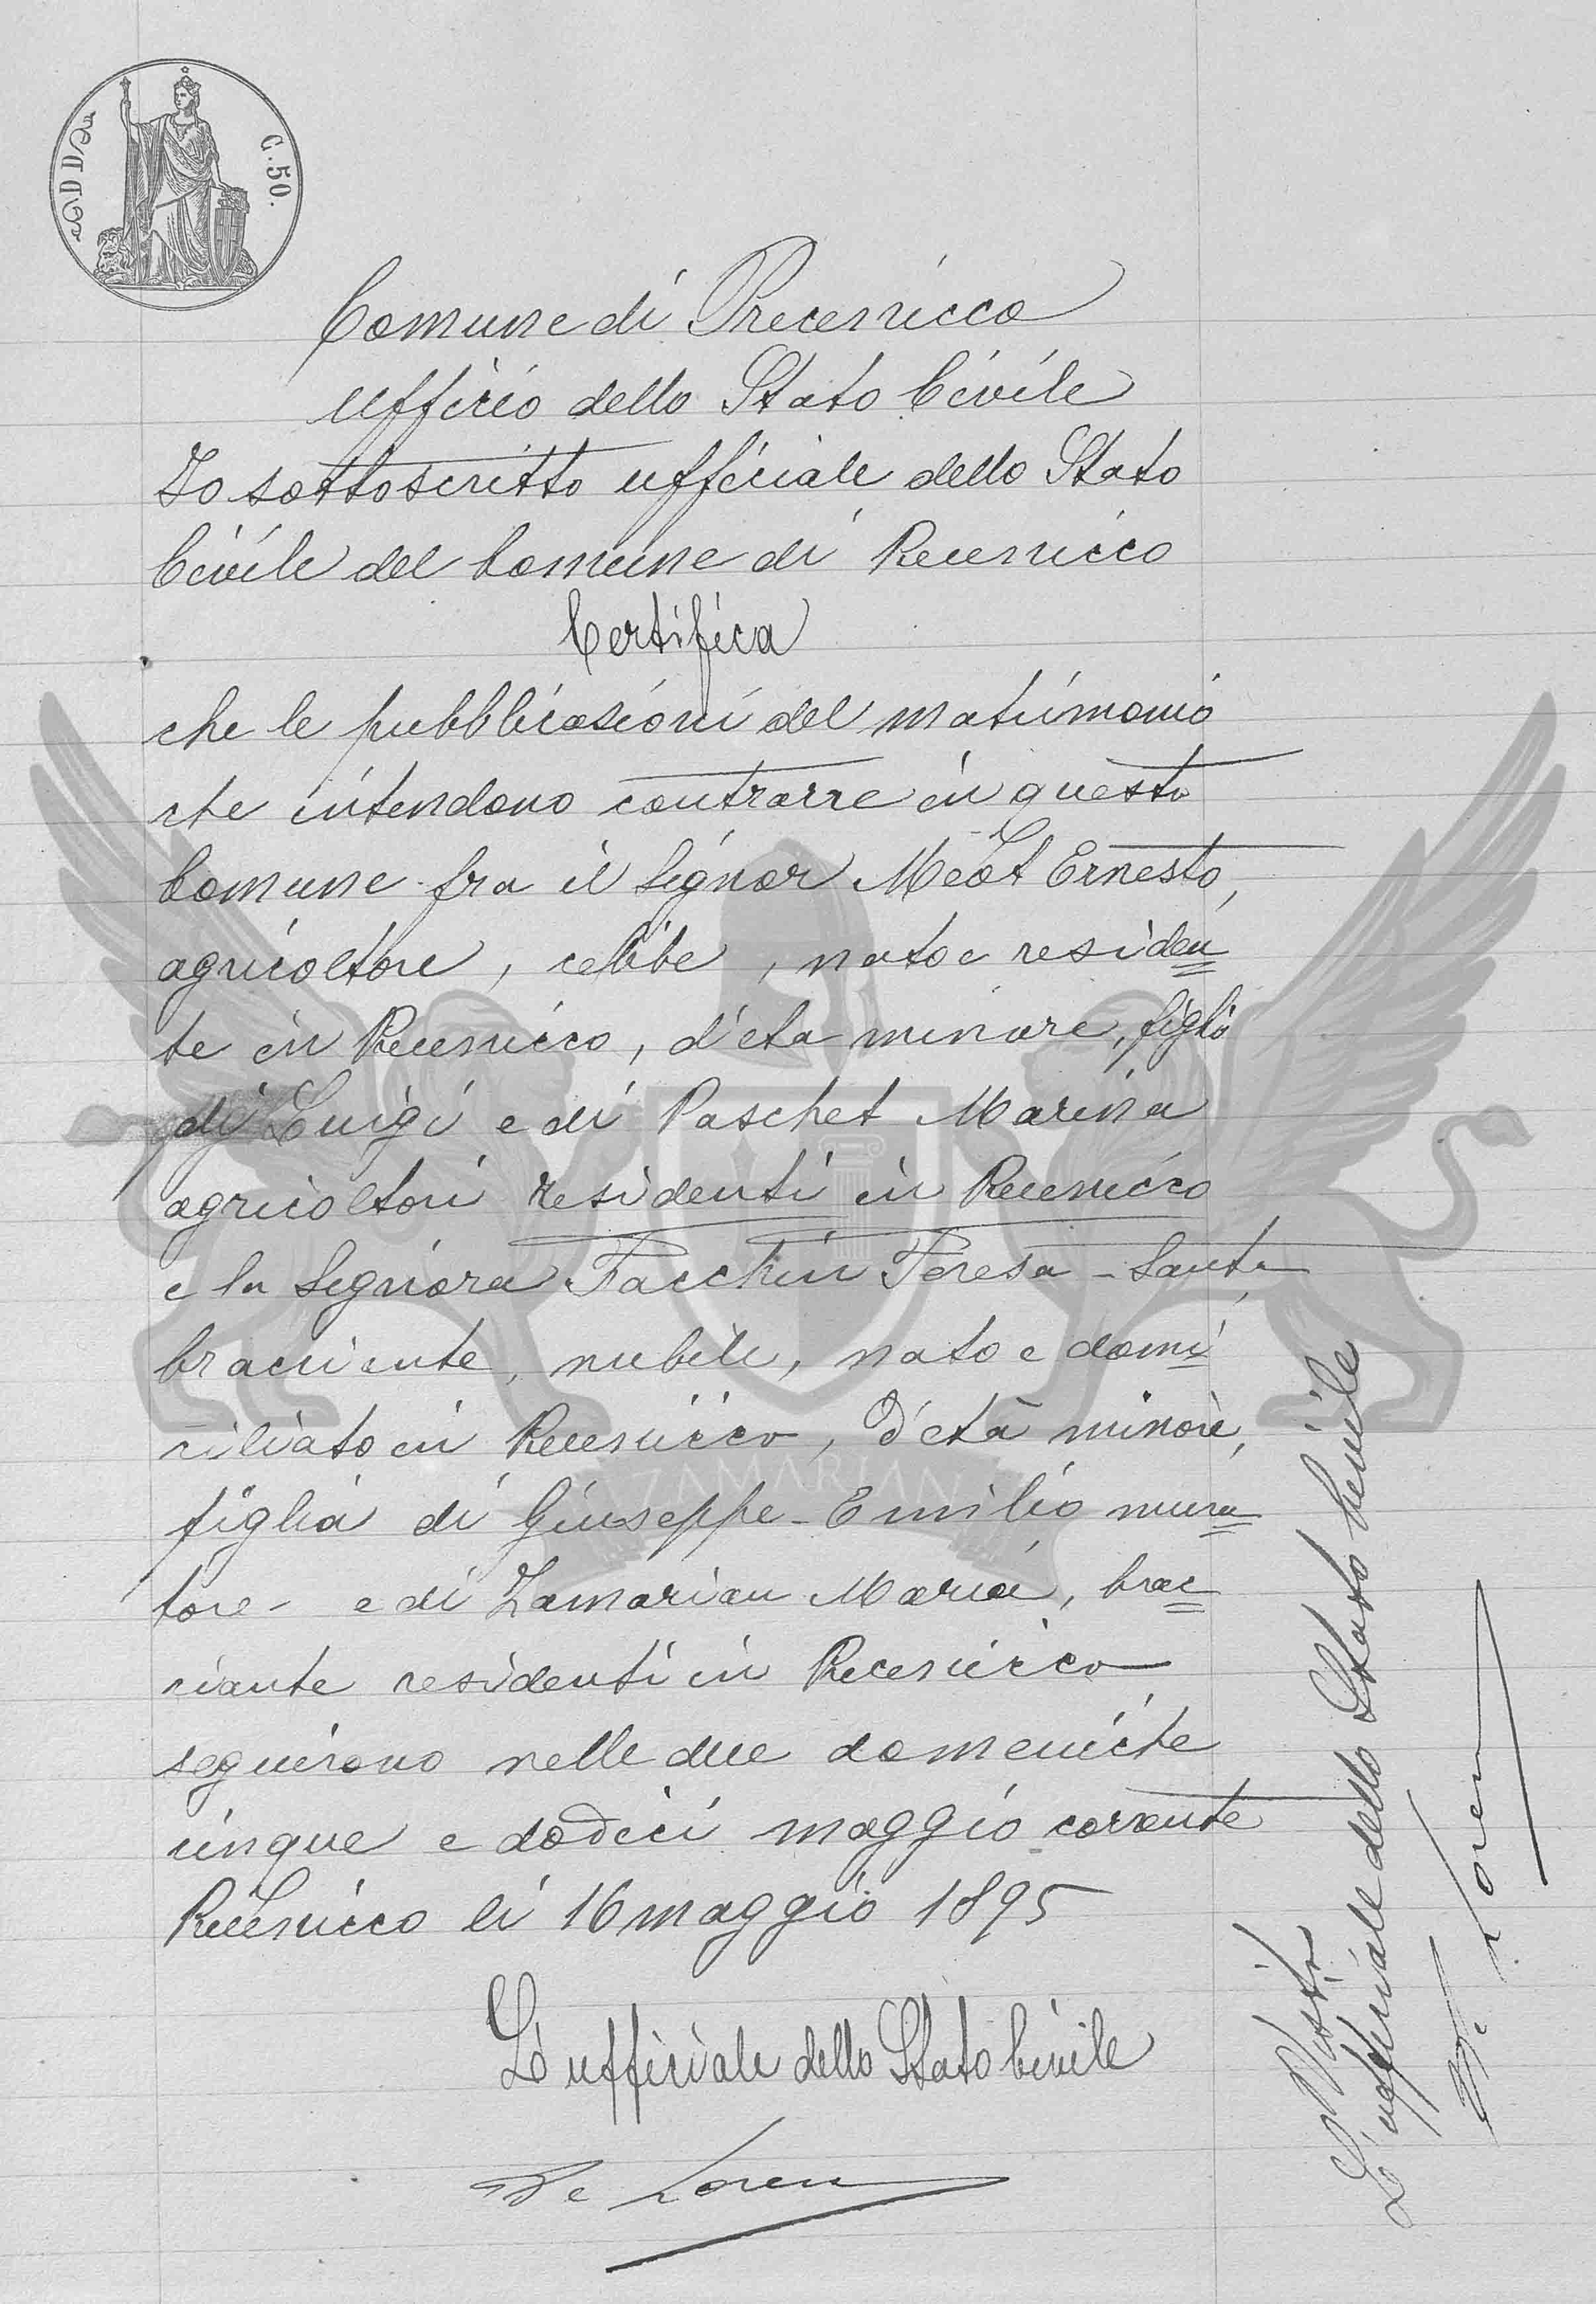 C. 50.
Comune di Precenicco
Ufficio dello Stato Civile
Io sottoscritto ufficiale dello Stato
Civile del Comune di Precenicco
Certifica
che le pubblicazioni del matrimonio
che intendono contrarre in questo
Comune fra il Signor Meot Ernesto,
agricoltore, celibe, nato e residen
te in Precenicco, d'eta minore, figlio
di Luigi e di Paschet Marina
agricoltori residenti in Precenicco
e la Signora Facchin Teresa - Santa,
bracciante, nubile, nato e domi
ciliato in Precenicco, d'età minore,
figlia di Giuseppe - Emilio mura
tore - e di Zamarian Maria, brac
ciante residenti in Precenicco
seguirono nelle due domeniche
cinque e dodici maggio corrente
Precenicco li 16 maggio 1895
L'ufficiale dello Stato Civile
De Loren
Visto
L'ufficiale dello Stato Civile
De Loren
ZAMARIAN